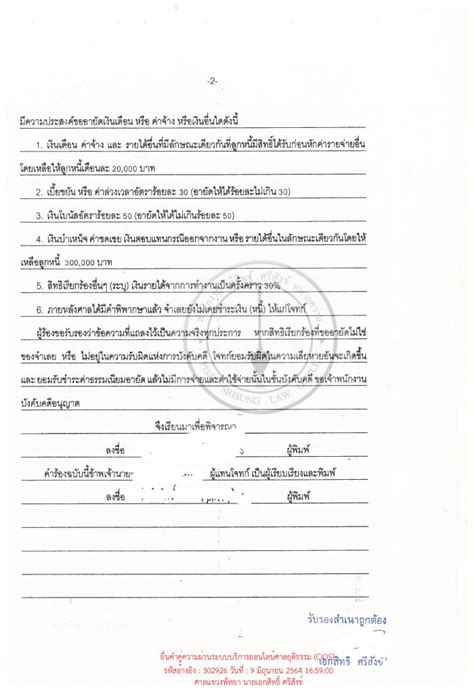 -2-
มีความประสงค์ขออายัดเงินเดือน หรือ ค่าจ้าง หรือเงินอื่นใดดังนี้
1. เงินเดือน ค่าจ้าง และ รายได้อื่นที่มีลักษณะเดียวกันที่ลูกหนี้มีสิทธิ์ได้รับก่อนหักค่ารายจ่ายอื่น
โดยเหลือให้ลูกหนี้เดือนละ 20,000 บาท
2. เบี้ยขยัน หรือ ค่าล่วงเวลาอัตราร้อยละ 30 (อายัดให้ได้ร้อยละไม่เกิน 30)
3. เงินโบนัสอัตราร้อยละ 50 (อายัดให้ได้ไม่เกินร้อยละ 50)
4. เงินบำเหน็จ ค่าชดเชย เงินตอบแทนกรณีออกจากงาน หรือ รายได้อื่นในลักษณะเดียวกันโดยให้
เหลือลูกหนี้ 300,000 บาท
5. สิทธิเรียกร้องอื่นๆ (ระบุ) เงินรายได้จากการทำงานเป็นครั้งคราว 30%
6. ภายหลังศาลได้มีคำพิพากษาแล้ว จำเลยยังไม่เคยชำระเงิน (หนี้) ให้แก่โจทก์
ผู้ร้องขอรับรองว่าข้อความที่แถลงไว้เป็นความจริงทุกประการ หากสิทธิเรียกร้องที่ขออายัดไม่ใช่
ของจำเลย หรือ ไม่อยู่ในความรับผิดแห่งการบังคับคดี โจทก์ยอมรับผิดในความเสียหายอันจะเกิดขึ้น
และ ยอมรับชำระค่าธรรมเนียมอายัด แล้วไม่มีการจ่ายและค่าใช้จ่ายนั้นในชั้นบังคับคดี ขอเจ้าพนักงาน
บังคับคดีอนุญาต
SRISUNG LAW
จึงเรียนมาเพื่อพิจารณา
ลงชื่อ ผู้พิมพ์
คำร้องฉบับนี้ข้าพเจ้านาย ผู้แทนโจทก์ เป็นผู้เรียบเรียงและพิมพ์
ลงชื่อ ผู้พิมพ์
รับรองสำเนาถูกต้อง
ยื่นคำคู่ความผ่านระบบบริการออนไลน์ศาลยุติธรรม (CIOS)
เอกสิทธิ์ ศรีสังข์
รหัสอ้างอิง : 302926 วันที่ : 9 มิถุนายน 2564 16:59:00
ศาลแขวงพัทยา นายเอกสิทธิ์ ศรีสังข์